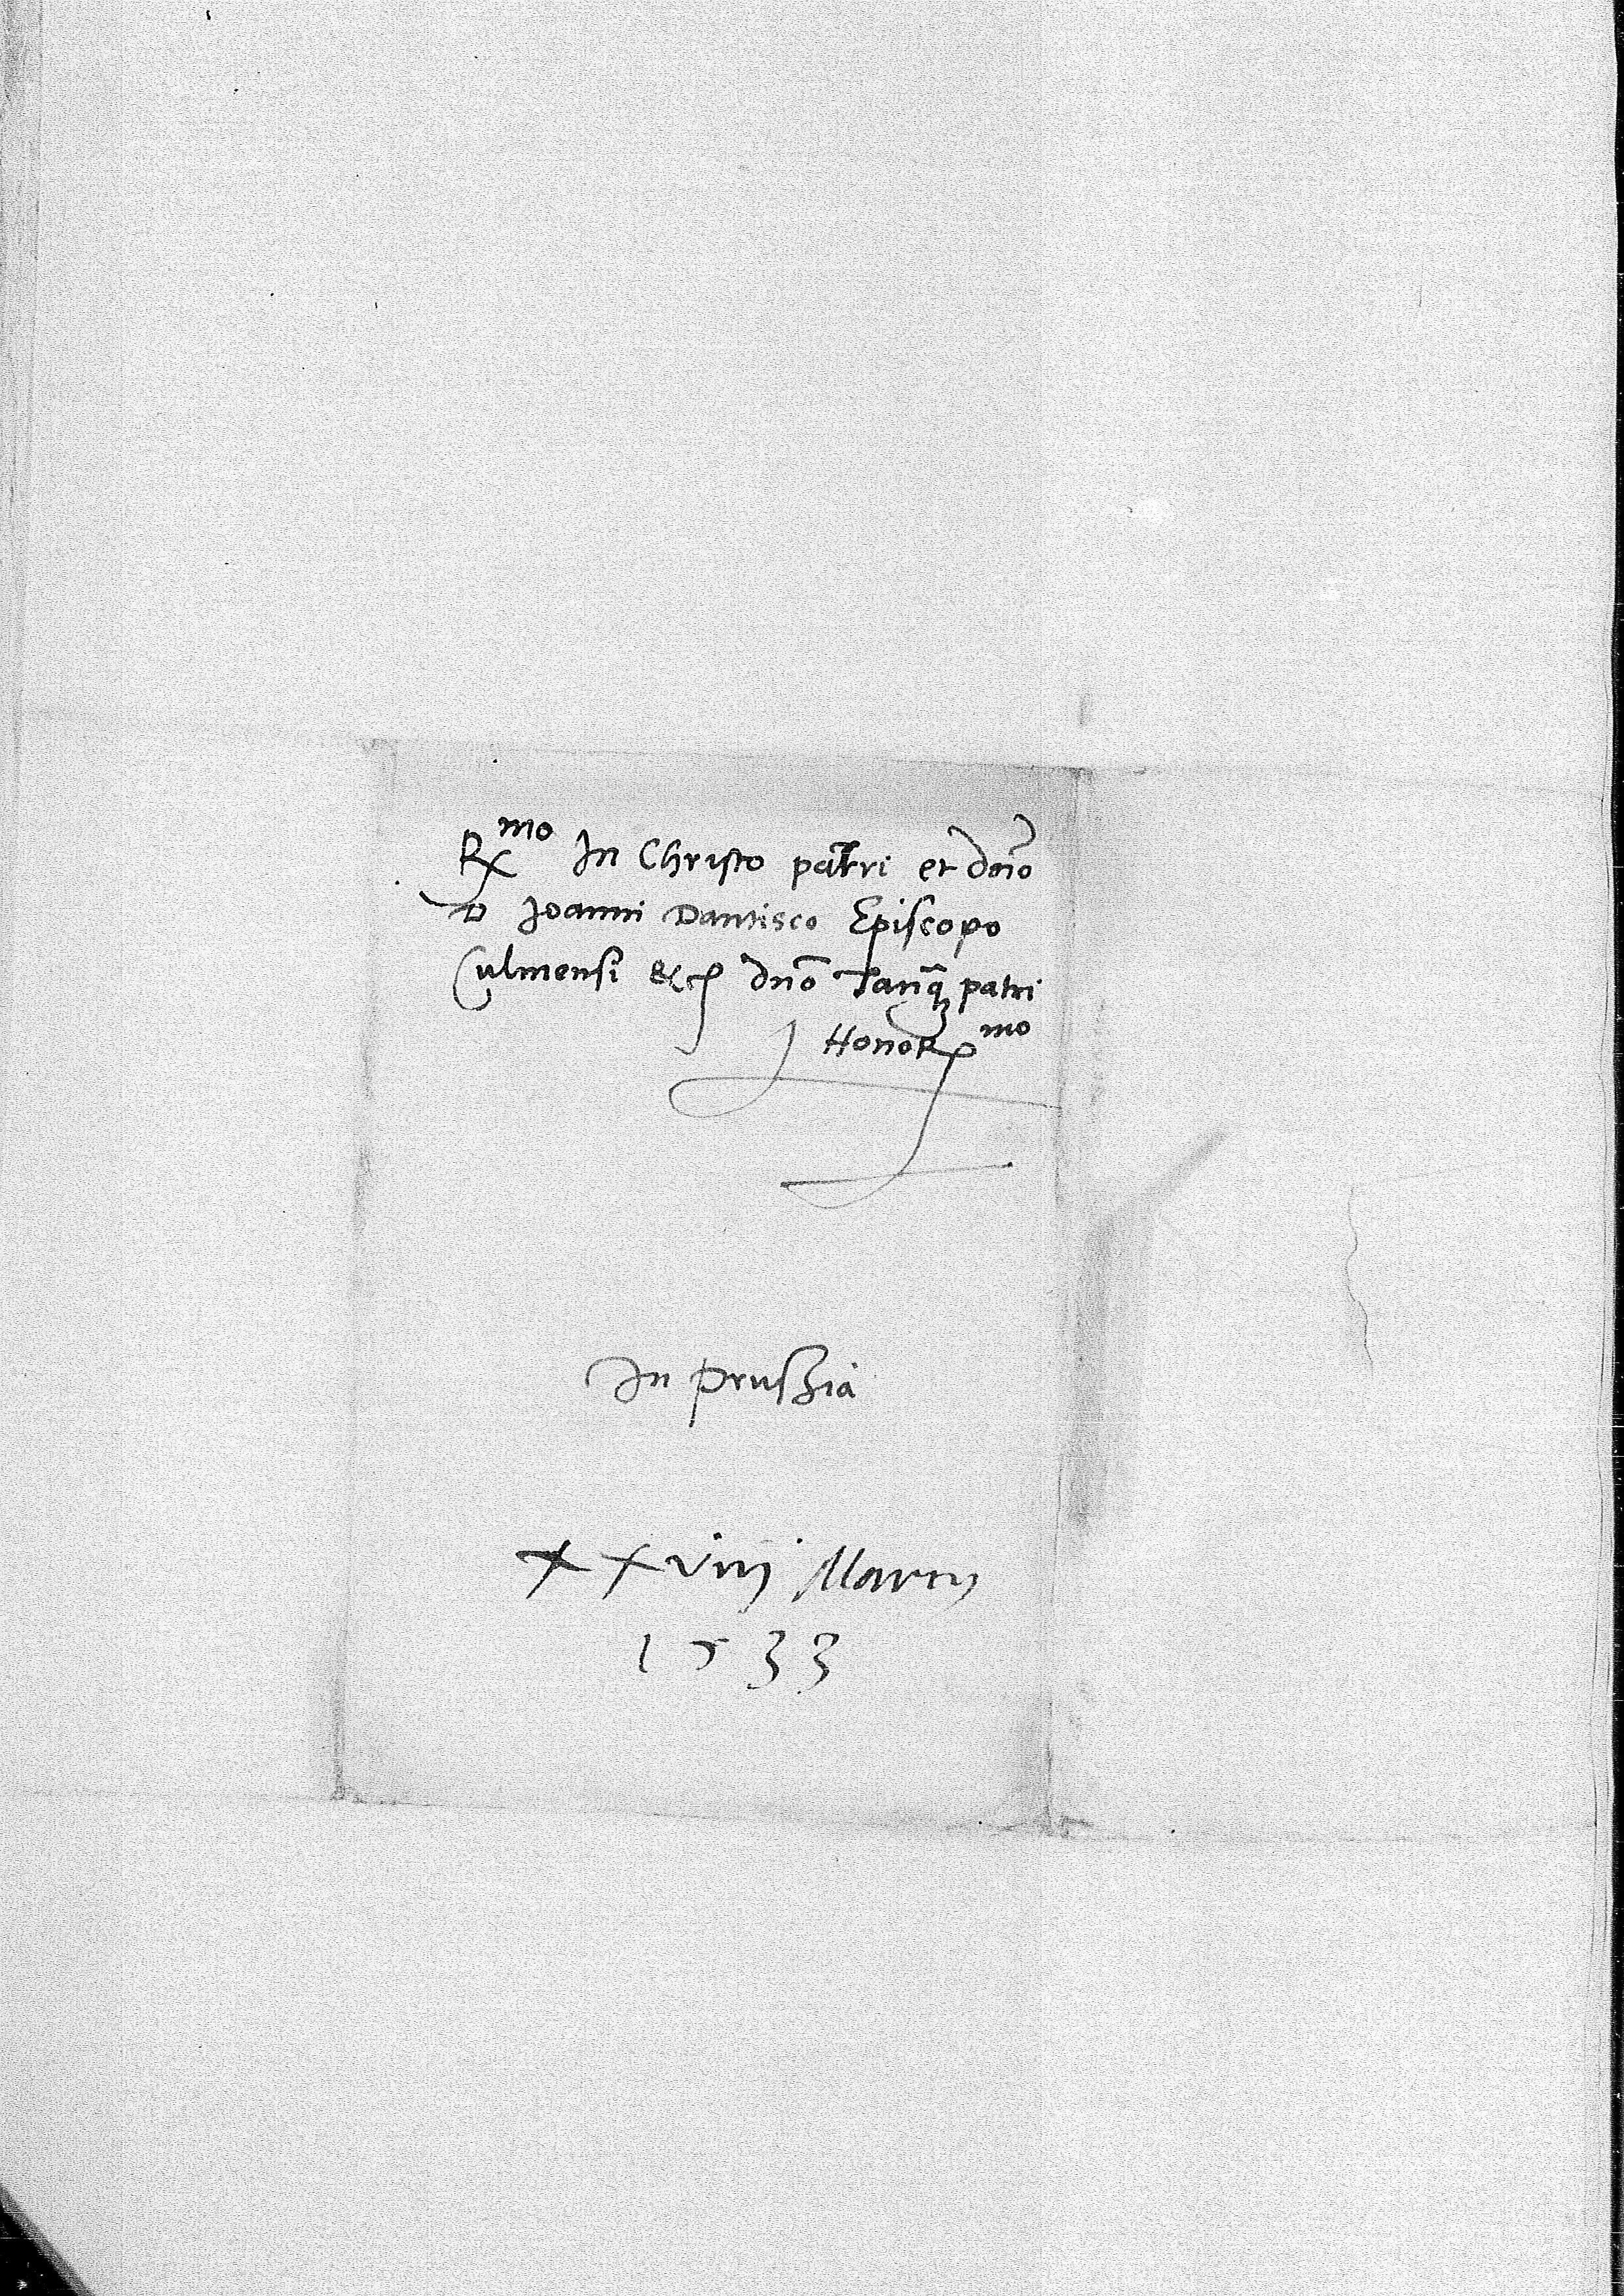 R^mo In Christo patri et dno
D Joanni Dantisco Episcopo
Culmensi &c dno Tanq̃ patri
Honor^mo
In prussia
XXviij Marcij
1533